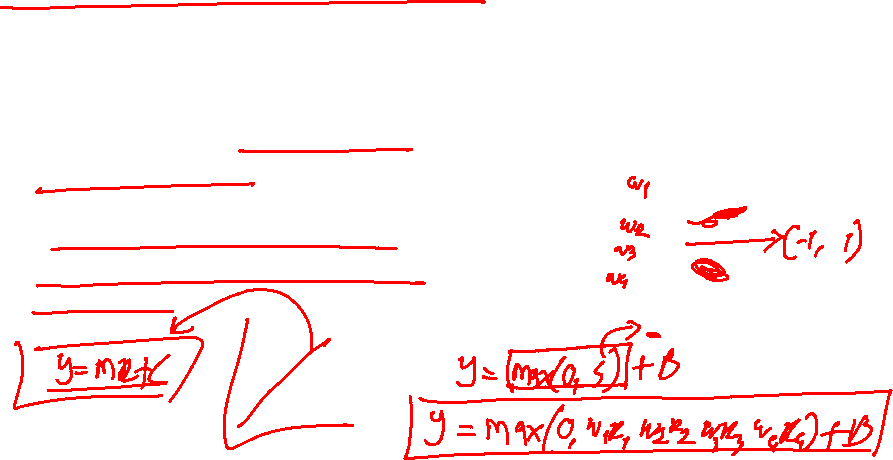 w1
w2
w3
w4
(-1, 1)
y=mx+c
y = max(0, s) + B
y = max(0, w1x1 w2x2 w3x3 w4x4) + B